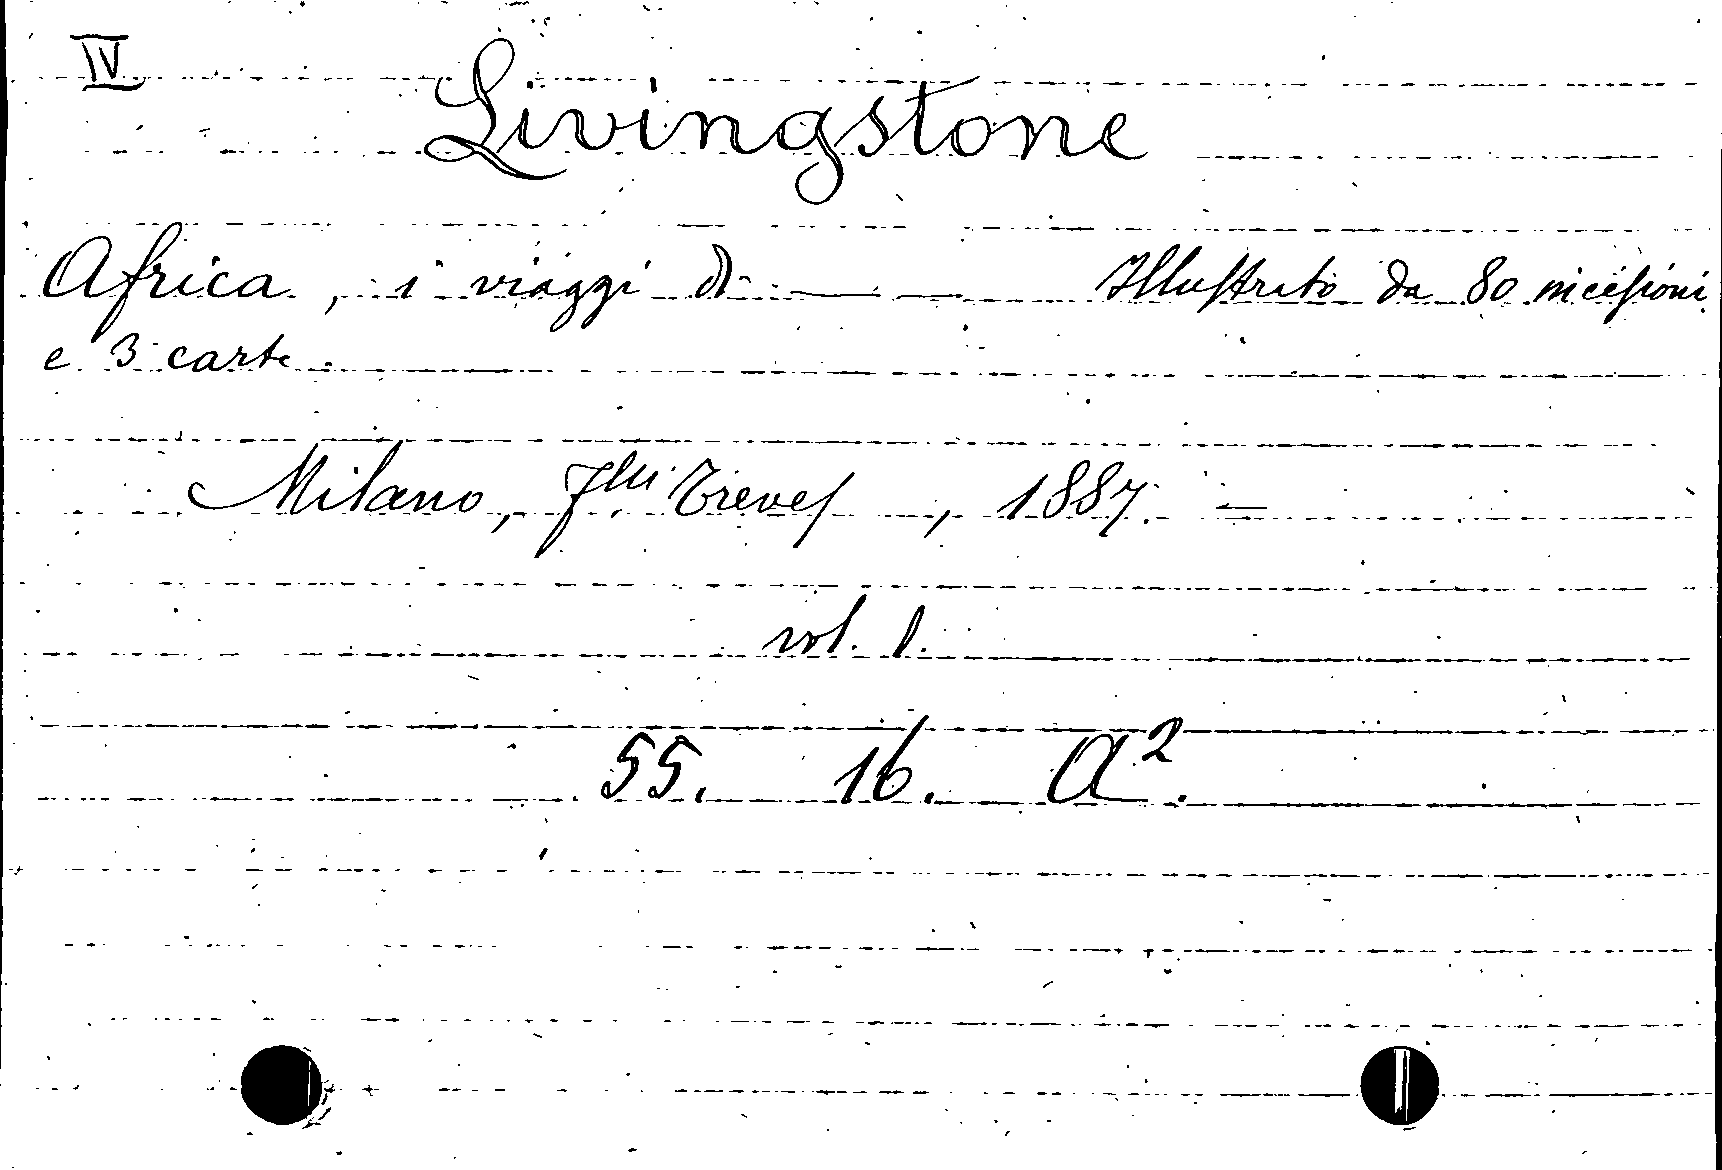 IV
Livingstone
Africa, i viaggi di —— Illustrato da 80 incisioni
e 3 carte.
Milano, Flli Treves, 1887. =
vol. 1.
55. 16. A².